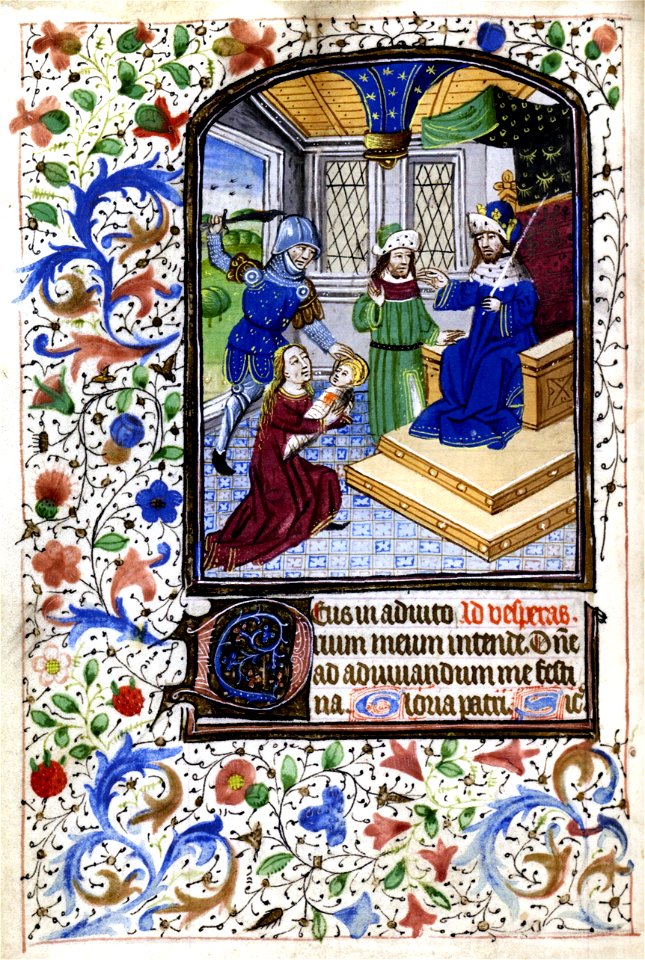 Deus in adiuto Ad vesperas.
rium meum intende. Dn̄e
ad adiuuandum me festi
na. Gloria patri. Sic